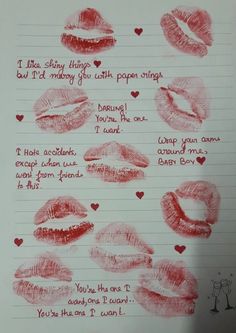 I like shiny things
but I'd marry you with paper rings
DARLING!
You're the one
I want.
Wrap your arms
around me,
BABY BOY
I Hate accidents,
except when we
went from friends
to this..
You're the one I
want, one I want..
You're the one I want..